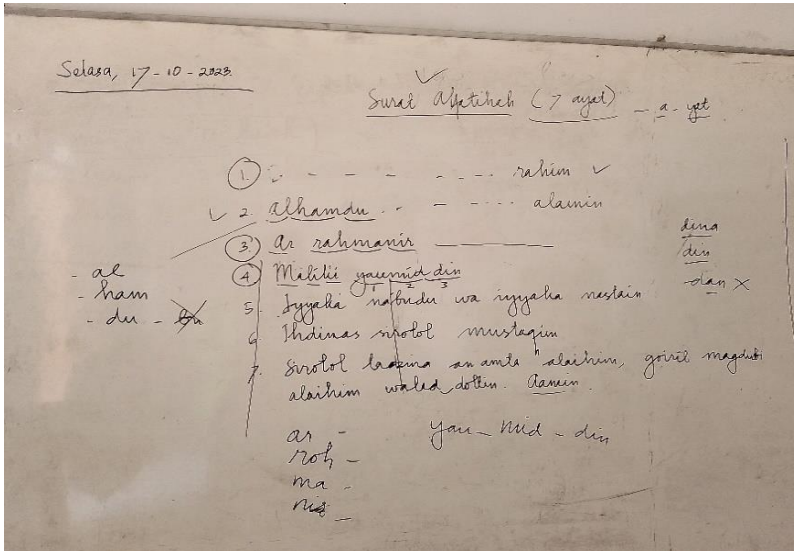 Selasa, 17-10-2023
Surat Alfatihah (7 ayat) - a - yat
1. - - - - - - - rahim
2. Alhamdu .. - - .... alamin
3. Ar rahmanir
4. Maliki yaumid din
1 2 3
5. Iyyaka nabudu wa iyyaka nastain
6. Ihdinas sirotol mustaqim
7. Sirotol lazina an amta "alaihim, goiril magdubi
alaihim walad dollin. Aamin.
- al
- ham
- du - bu
dina
din
- dan X
ar -
roh -
ma -
nir -
yau - mid - din